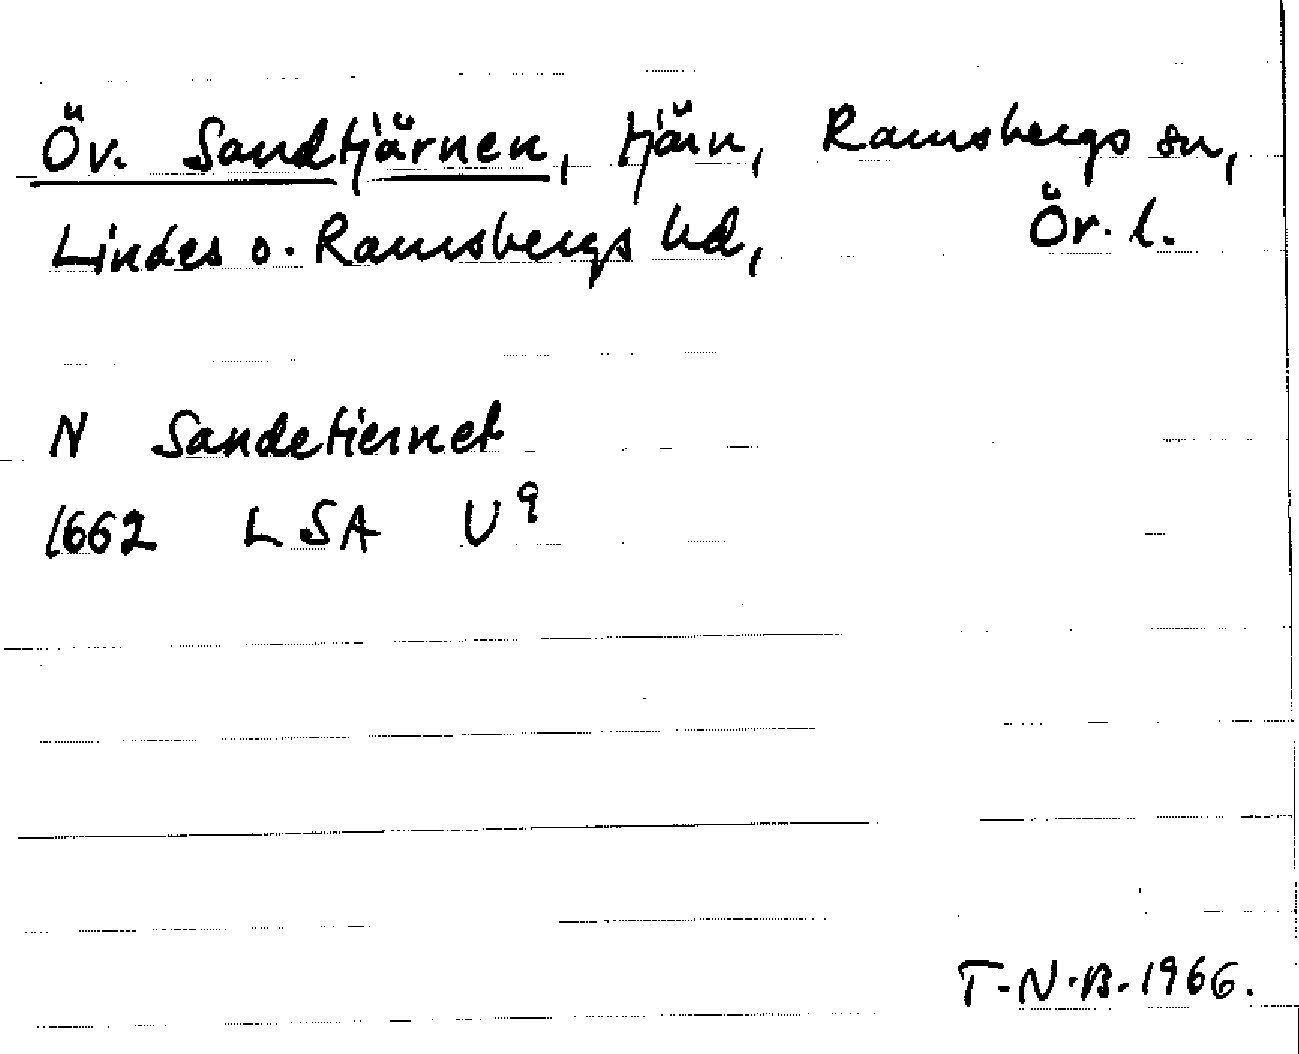 Öv. Sandtjärnen, tjärn, Ramsbergs sn,
Lindes o. Ramsbergs hd, Ör. l.
N Sandetiernet
1662 LSA U9
T-N.B. 1966.